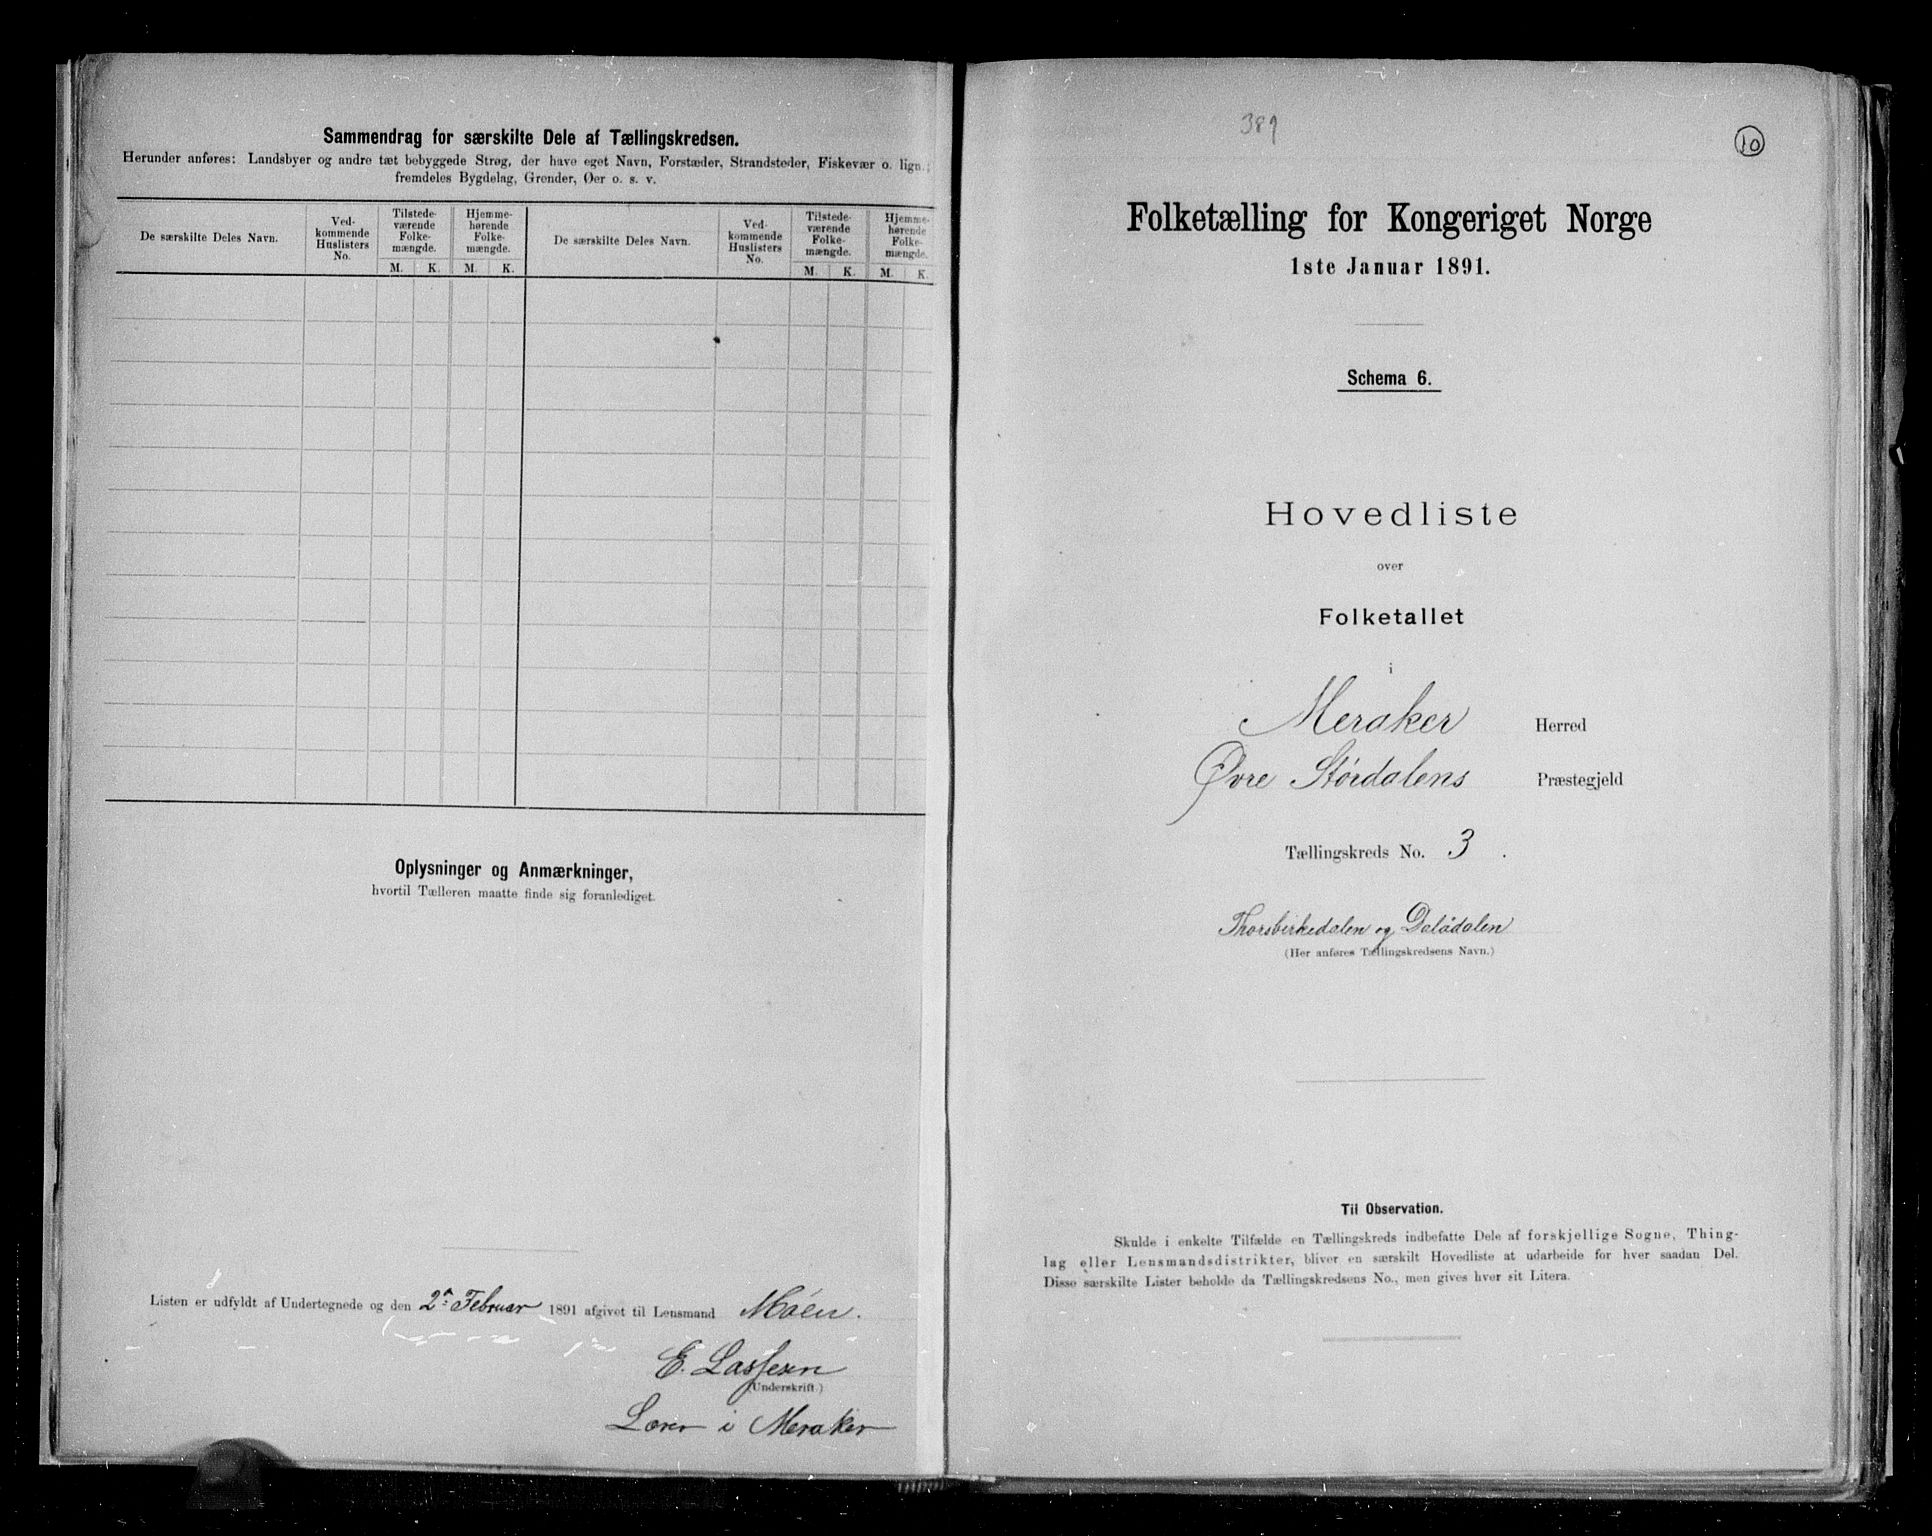 Sammendrag for særskilte Dele af Tællingskredsen.
Herunder anføres: Landsbyer og andre tæt bebyggede Strøg, der have eget Navn, Forstæder, Strandsteder, Fiskevær o. lign.;
fremdeles Bygdelag, Grender, Øer o. s. v.
De særskilte Deles Navn.
Ved-
kommende
Huslisters
No.
Tilstede-
værende
Folke-
mængde.
Hjemme-
hørende
Folke-
mængde.
M. K. M. K.
De særskilte Deles Navn.
Ved-
kommende
Huslisters
No.
Tilstede-
værende
Folke-
mængde.
Hjemme-
hørende
Folke-
mængde.
M. K. M. K.
Oplysninger og Anmærkninger,
hvortil Tælleren maatte finde sig foranlediget.
Listen er udfyldt af Undertegnede og den 2n Februar 1891 afgivet til Lensmand Moen.
E. Lassesen
(Underskrift.)
Lærer i Meraker
389
10
Folketælling for Kongeriget Norge
1ste Januar 1891.
Schema 6.
Hovedliste
over
Folketallet
i
Meraker Herred
Øvre Størdalens Præstegjeld
Tællingskreds No. 3.
Thorsbirkedalen og Dalådalen
(Her anføres Tællingskredsens Navn.)
Til Observation.
Skulde i enkelte Tilfælde en Tællingskreds indbefatte Dele af forskjellige Sogne, Thing-
lag eller Lensmandsdistrikter, bliver en særskilt Hovedliste at udarbeide for hver saadan Del.
Disse særskilte Lister beholde da Tællingskredsens No., men gives hver sit Litera.